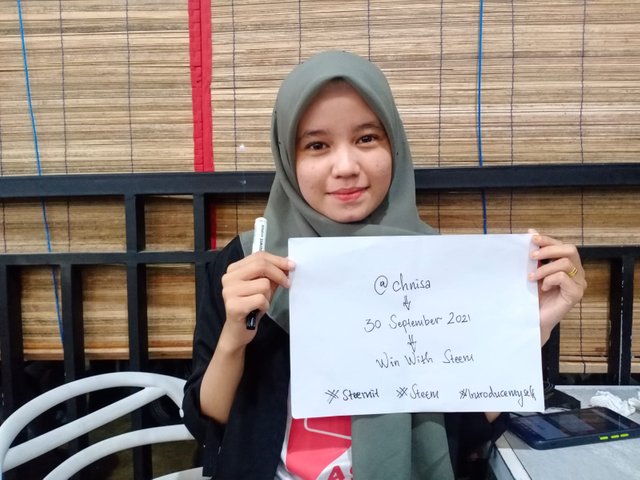 @chnisa
30 September 2021
Win With Steem
#Steemit #Steem #Introducemyself